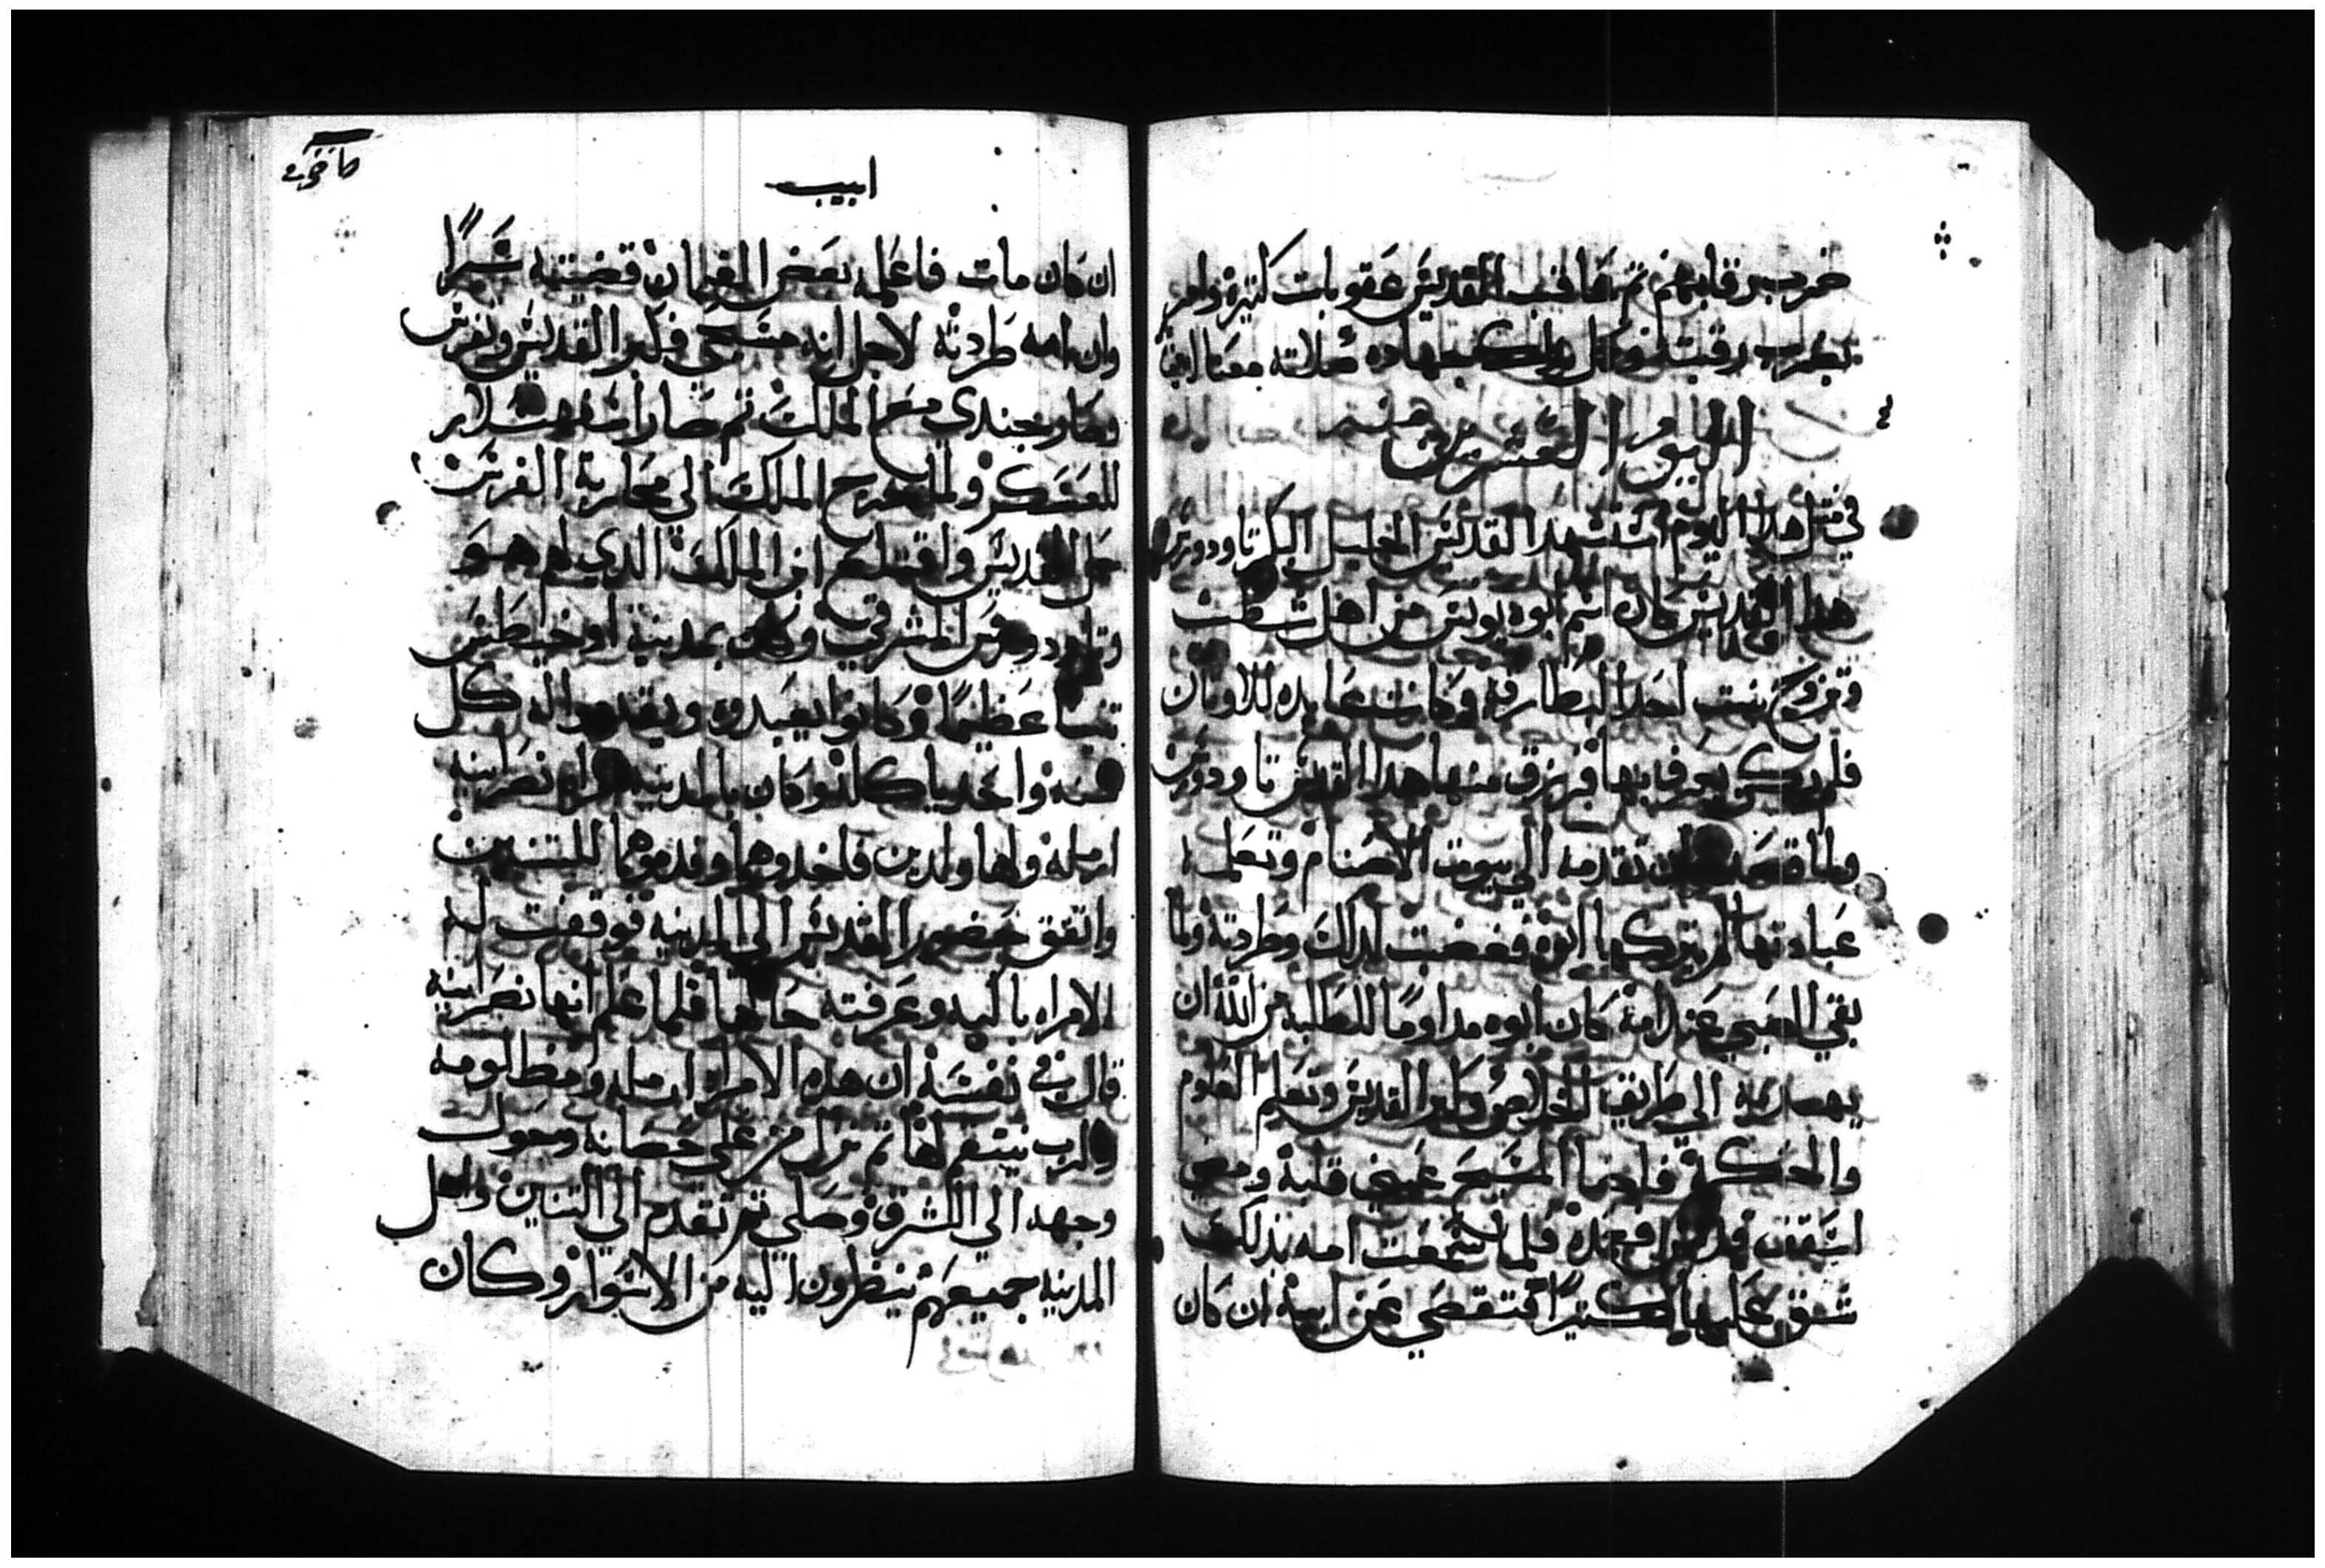 ضرب رقابهم ثم عاقب القديس عقوبات كثيره وامر
بضرب رقبته شهاده صلاته معنا امين
اليوم العشرين
في مثل هذا اليوم استشهد القديس الجليل تاودورس
هدا القديس كان اسم ابوه يونس من اهل شطب
وتزوج بنت احد البطارقه وكانت عابده للاوتان
فلم يكن يعرف ابنها فرزق منها هدا القديس تاودورس
ولما قصدت ان تقدمه الى بيوت الاصنام وتعلمه
عبادتها لم يتركها ابوه فغضبت لدلك وطردته ولما
بقي الصبي عند امه كان ابوه مداوما للطلبه من الله ان
يهديه الى طريق الخلاص وكبر القديس وتعلم العلوم
والحكمه فاضا المسيح عيني قلبه ومضي
اسقف فعمده فلما سمعت امه بذلك
شق عليها كثيرا فتقصي عن ابيه ان كان
كافوري
ابيب
ان كان مات فاعلمه بعض الغلمان قضيته سرا
وان امه طردته لاجل انه مسيحي فكبر القديس وتفرس
وصار جندي مع الملك ثم صار اسفهسلار
للعسكر ولما خرج الملك الى محاربة الفرس
حمل القديس واقتلع ابن الملك الدي لهم هو
وتاودورس المشرقي وكان بمدينة اوخيطس
تنينا عظيما وكانوا يعبدوه ويقدموا له كل
سنه واحد ياكله وكان بالمدينه امراه نصرانيه
ارمله ولها ولدين فاخدوهما وقدموهما للتنين
واتفق حضور القديس الى المدينه فوقفت له
الامراه باكيه وعرفته حالها فلما علم انها نصرانيه
قال في نفسه ان هده الامراه ارمله ومظلومه
والرب ينتقم لها ثم نزل من على حصانه وحول
وجهه الى الشرق وصلي ثم تقدم الى التنين واهل
المدينه جميعهم ينظرون اليه من الاسوار وكان